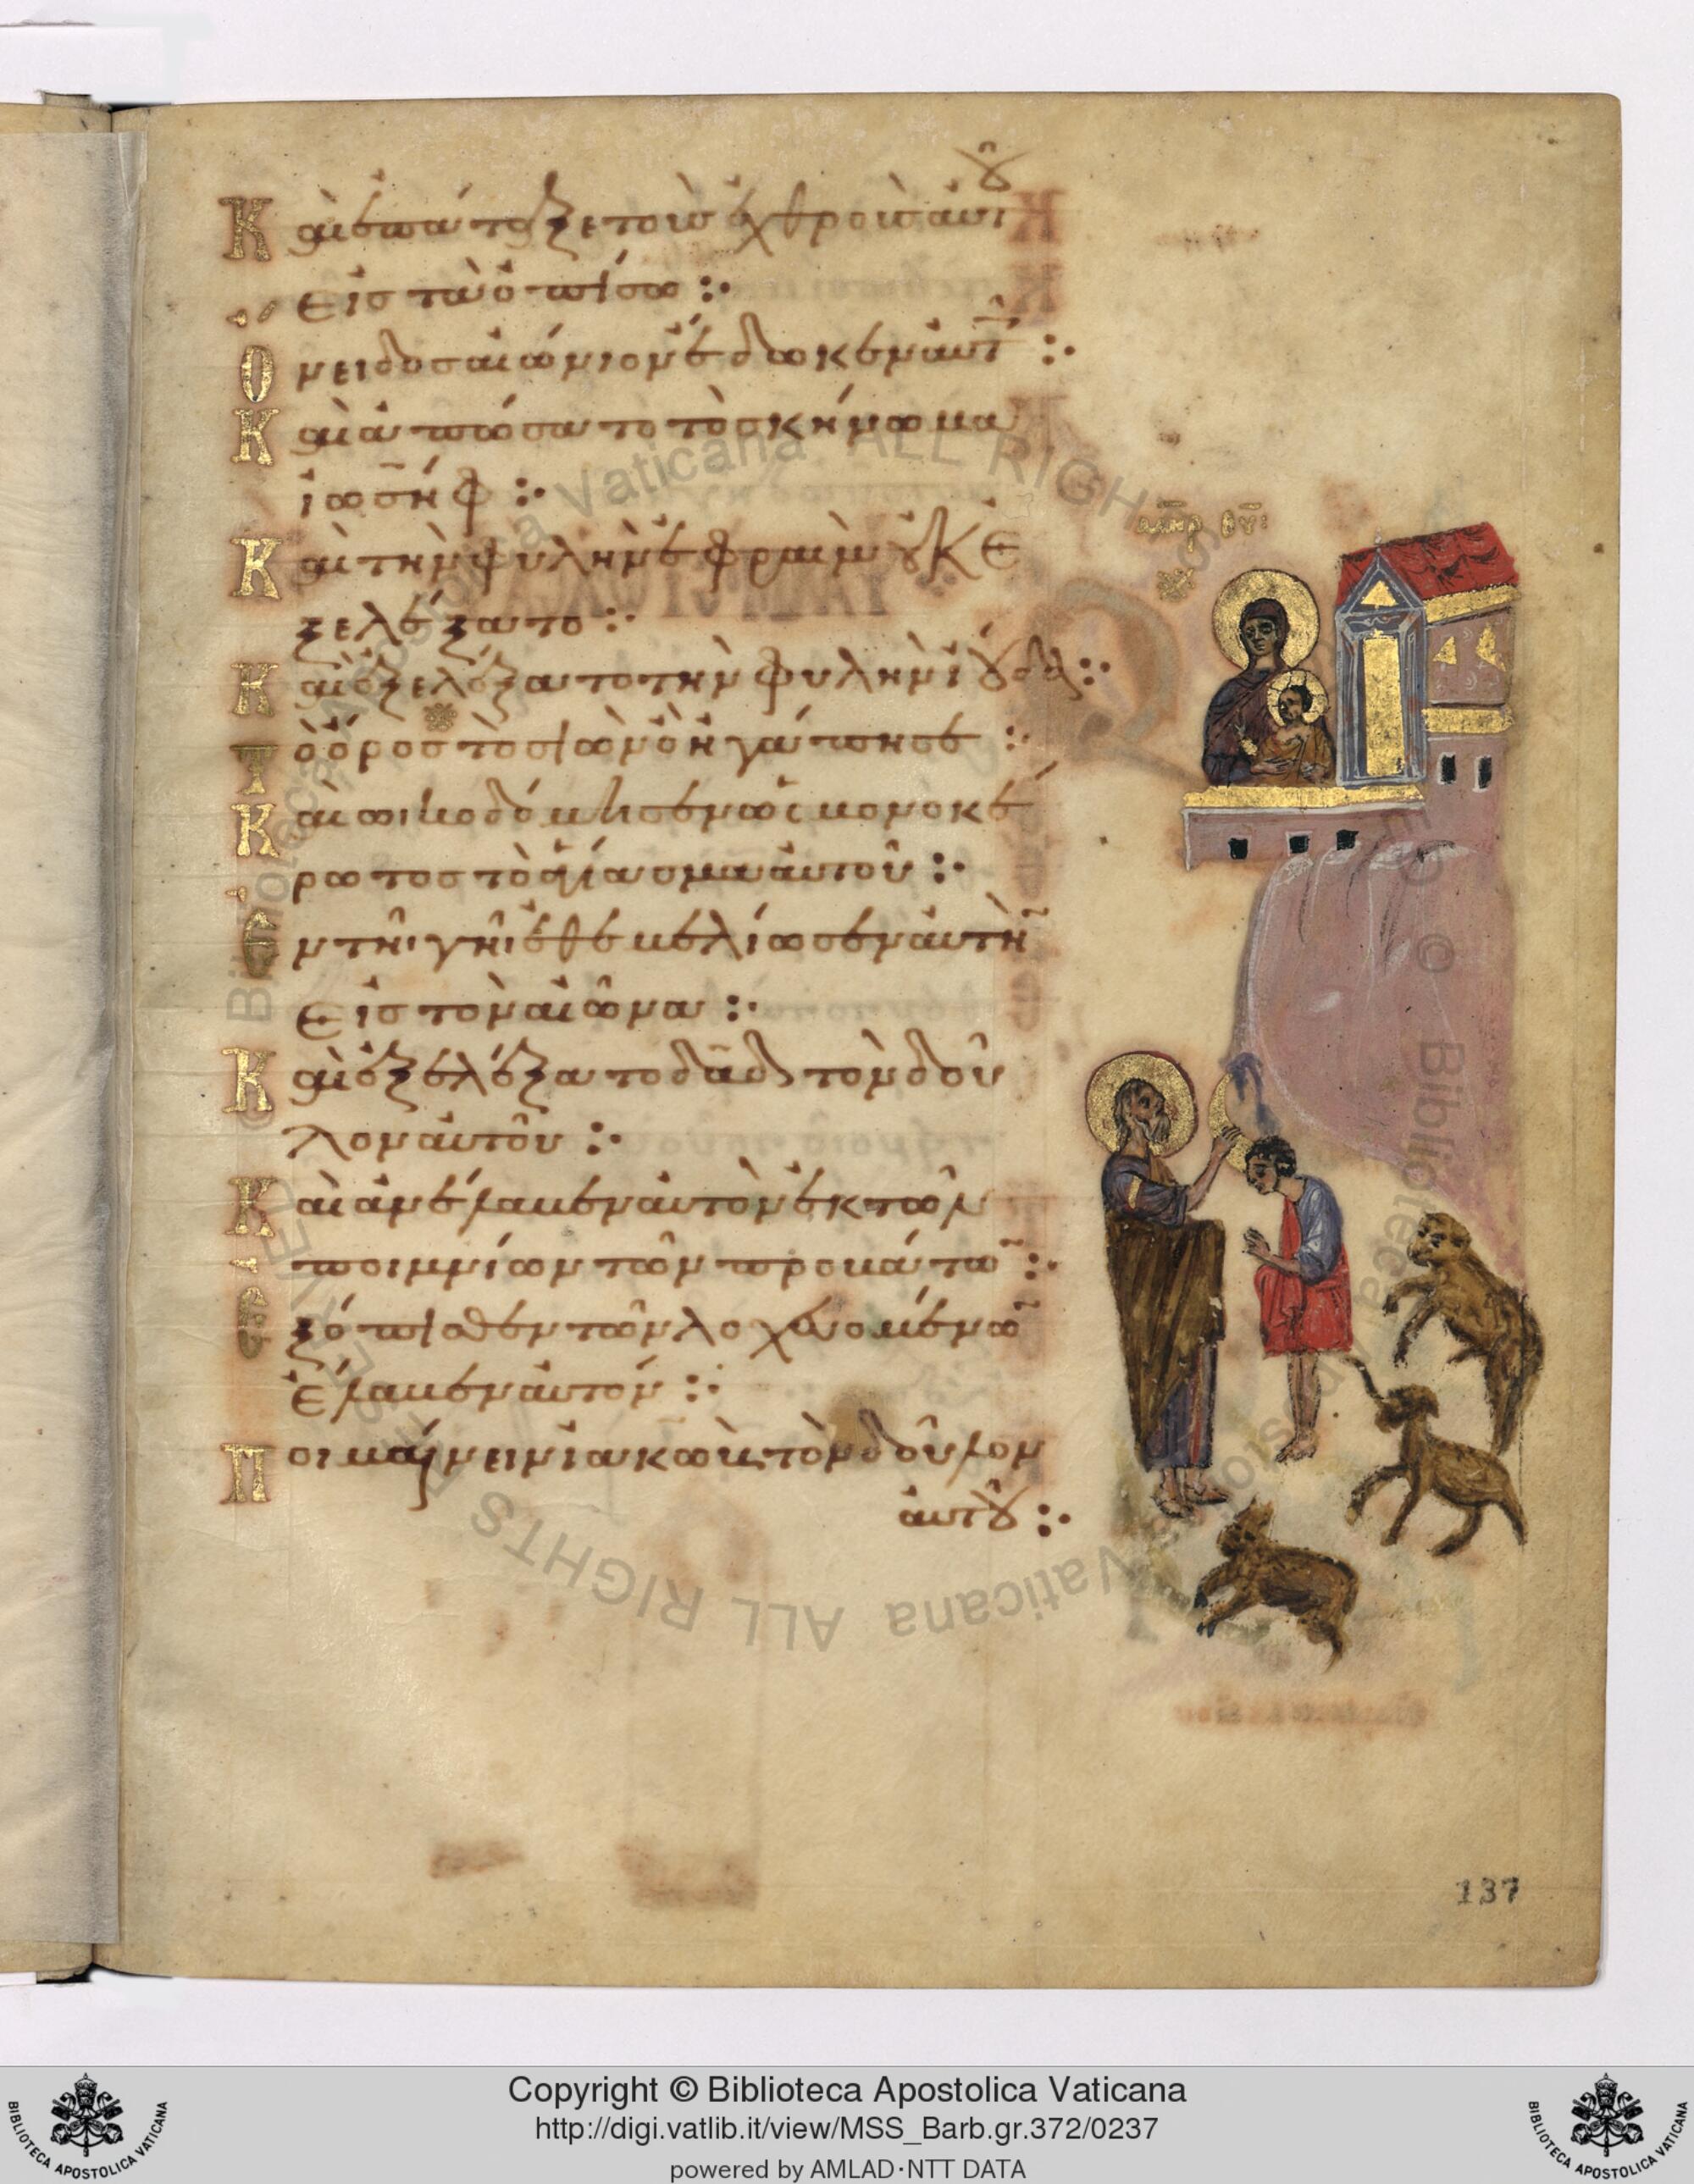 Καὶ ἐπάταξε τοὺς ἐχθροὺς αὐτοῦ
εἰς τὰ ὀπίσω :·
Ὄνειδος αἰώνιον ἔδωκεν αὐτοῖς :·
Καὶ ἀπώσατο τὸ σκήνωμα
ἰωσήφ :·
Καὶ τὴν φυλὴν ἐφραὶμ οὐκ ἐ
ξελέξατο :·
Καὶ ἐξελέξατο τὴν φυλὴν ἰούδα :·
Τὸ ὄρος τὸ σιὼν ὃ ἠγάπησε :·
Καὶ ὠικοδόμησεν ὡς μονοκέ
ρωτος τὸ ἁγίασμα αὐτοῦ :·
Ἐν τῆι γῆι ἐθεμελίωσεν αὐτὴν
εἰς τὸν αἰῶνα :·
Καὶ ἐξελέξατο δαδ τὸν δοῦ
λον αὐτοῦ :·
Καὶ ἀνέλαβεν αὐτὸν ἐκ τῶν
ποιμνίων τῶν προβάτων :·
Ἐξόπισθεν τῶν λοχευομένων
ἔλαβεν αὐτόν :·
Ποιμαίνειν ἰακὼβ τὸν δοῦλον
αὐτοῦ :·
μηρ θυ
137
Copyright © Biblioteca Apostolica Vaticana
http://digi.vatlib.it/view/MSS_Barb.gr.372/0237
powered by AMLAD·NTT DATA
BIBLIOTECA APOSTOLICA VATICANA
BIBLIOTECA APOSTOLICA VATICANA